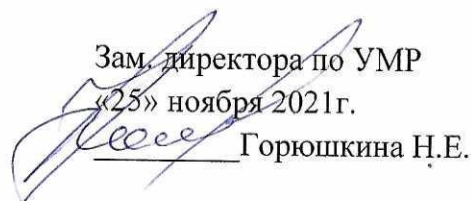 Зам. директора по УМР
«25» ноября 2021г.
_________Горюшкина Н.Е.